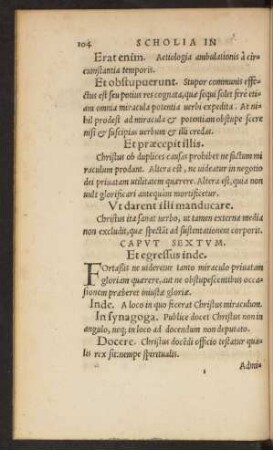 104 SCHOLIA IN
Erat enim. Aetiologia ambulationis à cir
cumstantia temporis.
Et obstupuerunt. Stupor communis effe
ctus est seu potius res cognata, quæ sequi solet ferè eti
am omnia miracula potentia uerbi expedita. At ni
hil prodest ad miracula & potentiam obstupescere
nisi & suscipias uerbum & illi credas.
Et præcepit illis.
Christus ob duplices causas prohibet ne fictum mi
raculum prodant. Altera est, ne uideatur in negotio
dei priuatam utilitatem quærere. Altera est, quia non
uult glorificari antequàm mortificetur.
Vt darent illi manducare.
Christus ita sanat uerbo, ut tamen externa media
non excludit, quæ spectãt ad sustentationem corporis.
CAPVT SEXTVM.
Et egressus inde.
FOrtassis ne uideretur tanto miraculo priuatam
gloriam quærere, aut ne obstupescentibus occa
sionem præberet iniustæ gloriæ.
Inde. A loco in quo fecerat Christus miraculum.
In synagoga. Publice docet Christus non in
angulo, neq; in loco ad docendum non deputato.
Docere. Christus docẽdi officio testatur qua-
lis rex sit: nempe spiritualis.
Admi-